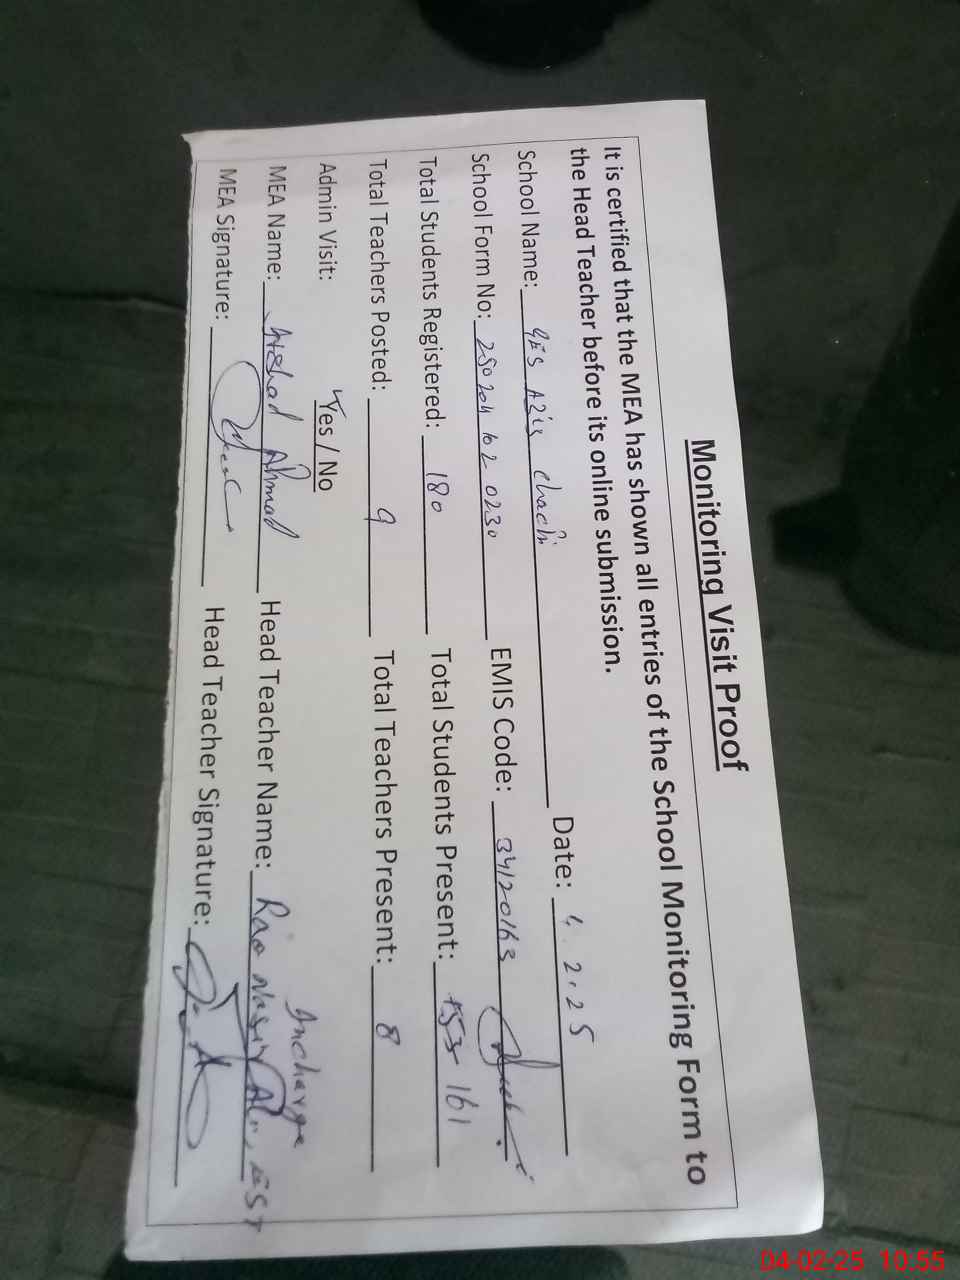 Monitoring Visit Proof
It is certified that the MEA has shown all entries of the School Monitoring Form to
the Head Teacher before its online submission.
School Name: GES Aziz chach Date: 4.2.25
School Form No: 250204 102 0230 EMIS Code: 34120163
Total Students Registered: 180 Total Students Present: 153 161
Total Teachers Posted: 9 Total Teachers Present: 8
Admin Visit: Yes / No Incharge
MEA Name: Arshad Ahmad Head Teacher Name: Rao Nasir Ali, EST
MEA Signature: Head Teacher Signature:
04-02-25 10:55